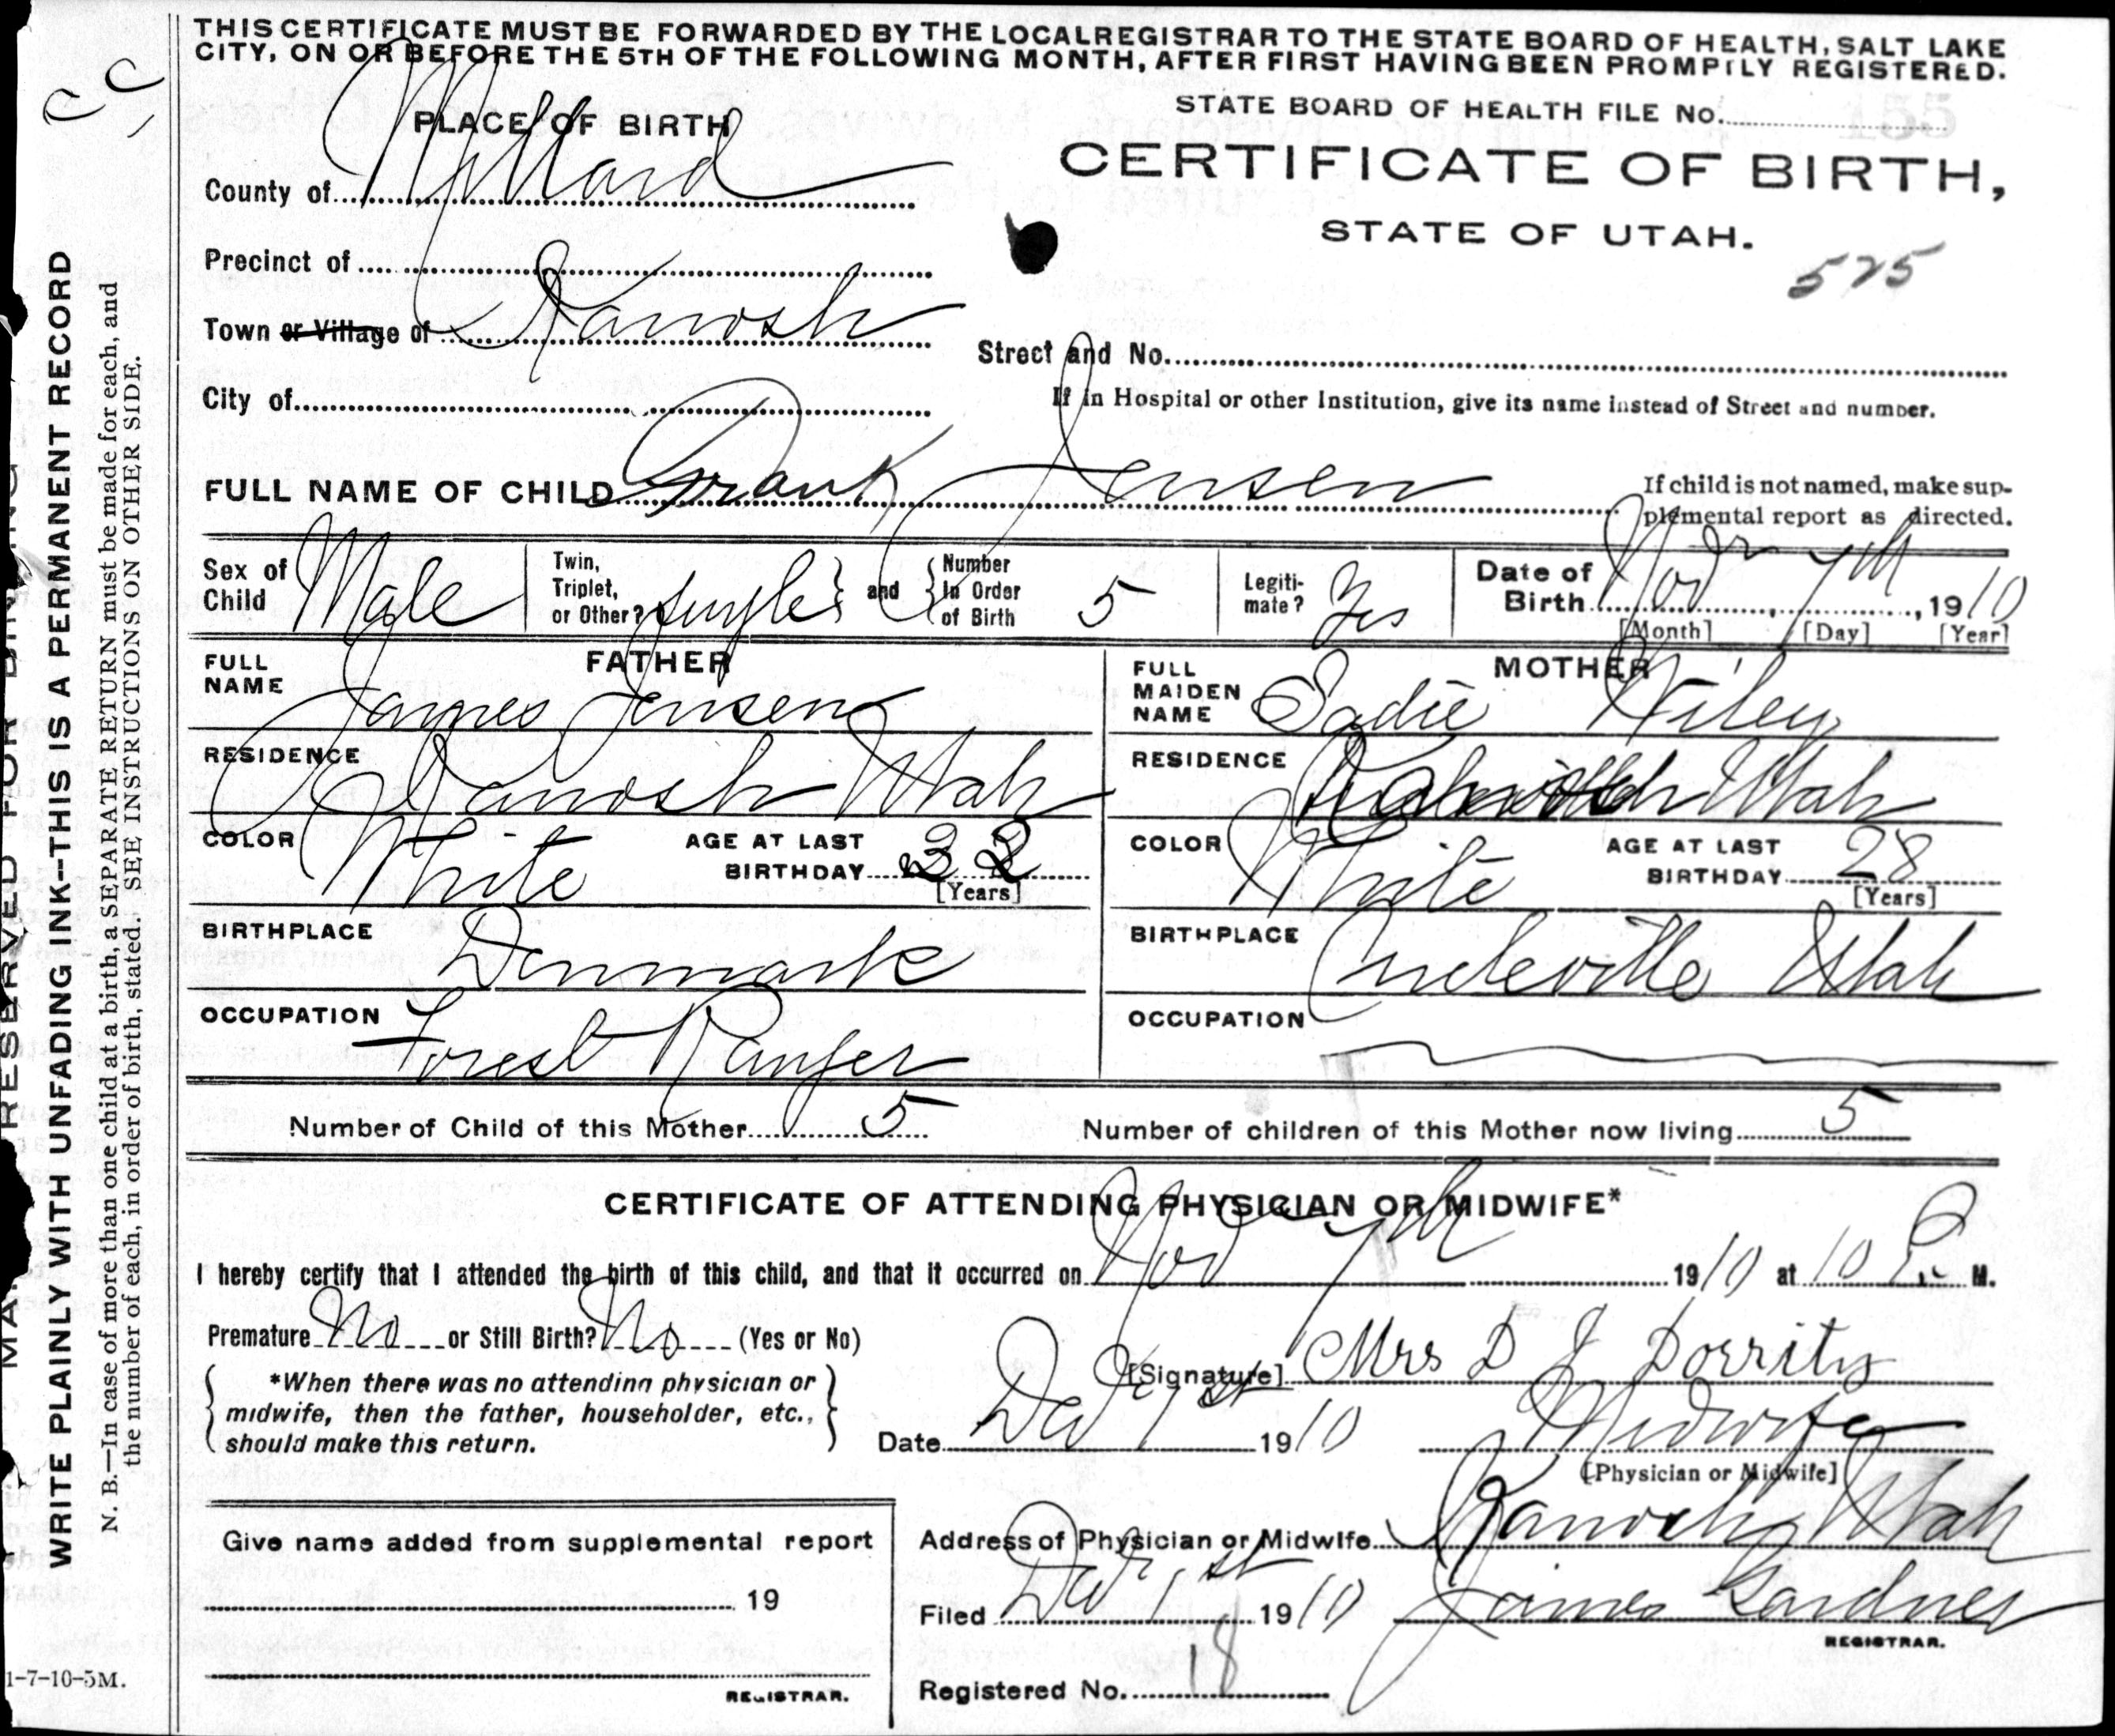 THIS CERTIFICATE MUST BE FORWARDED BY THE LOCAL REGISTRAR TO THE STATE BOARD OF HEALTH, SALT LAKE
CITY, ON OR BEFORE THE 5TH OF THE FOLLOWING MONTH, AFTER FIRST HAVING BEEN PROMPTLY REGISTERED.
PLACE OF BIRTH
STATE BOARD OF HEALTH FILE No.
CERTIFICATE OF BIRTH,
STATE OF UTAH.
525
County of Millard
Precinct of
Town or Village of Kanosh
Street and No.
City of
If in Hospital or other Institution, give its name instead of Street and number.
FULL NAME OF CHILD Frank Jensen
If child is not named, make sup-
plemental report as directed.
Sex of Child Male
Twin, Triplet, or Other? single and Number In Order of Birth 5
Legiti-mate? Yes
Date of Birth Nov 7th, 1910
[Month] [Day] [Year]
FATHER
FULL NAME James Jensen
RESIDENCE Kanosh Utah
COLOR White AGE AT LAST BIRTHDAY 32
[Years]
BIRTHPLACE Denmark
OCCUPATION Forest Ranger
MOTHER
FULL MAIDEN NAME Sadie Wiley
RESIDENCE Utah
COLOR White AGE AT LAST BIRTHDAY 28
[Years]
BIRTHPLACE Circleville Utah
OCCUPATION
Number of Child of this Mother 5
Number of children of this Mother now living 5
CERTIFICATE OF ATTENDING PHYSICIAN OR MIDWIFE*
I hereby certify that I attended the birth of this child, and that it occurred on Nov 7th 1910 at 10 P. M.
Premature No or Still Birth? No (Yes or No)
[Signature] Mrs D J Dorrity
*When there was no attending physician or
midwife, then the father, householder, etc.,
should make this return.
Date Dec 1st 1910
Midwife
[Physician or Midwife]
Give name added from supplemental report
19
REGISTRAR.
Address of Physician or Midwife Kanosh, Utah
Filed Dec 1st 1910 James Gardner
REGISTRAR.
Registered No. 18
1-7-10-5M.
MARGIN RESERVED FOR BINDING
WRITE PLAINLY WITH UNFADING INK--THIS IS A PERMANENT RECORD
N. B.—In case of more than one child at a birth, a SEPARATE RETURN must be made for each, and
the number of each, in order of birth, stated. SEE INSTRUCTIONS ON OTHER SIDE.